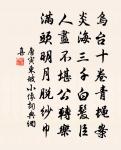 烏台十卷青蠅案
炎海三千白髮臣
人盡不堪公轉樂
滿頭明月脫紗巾
唐寅東坡小像詞典網